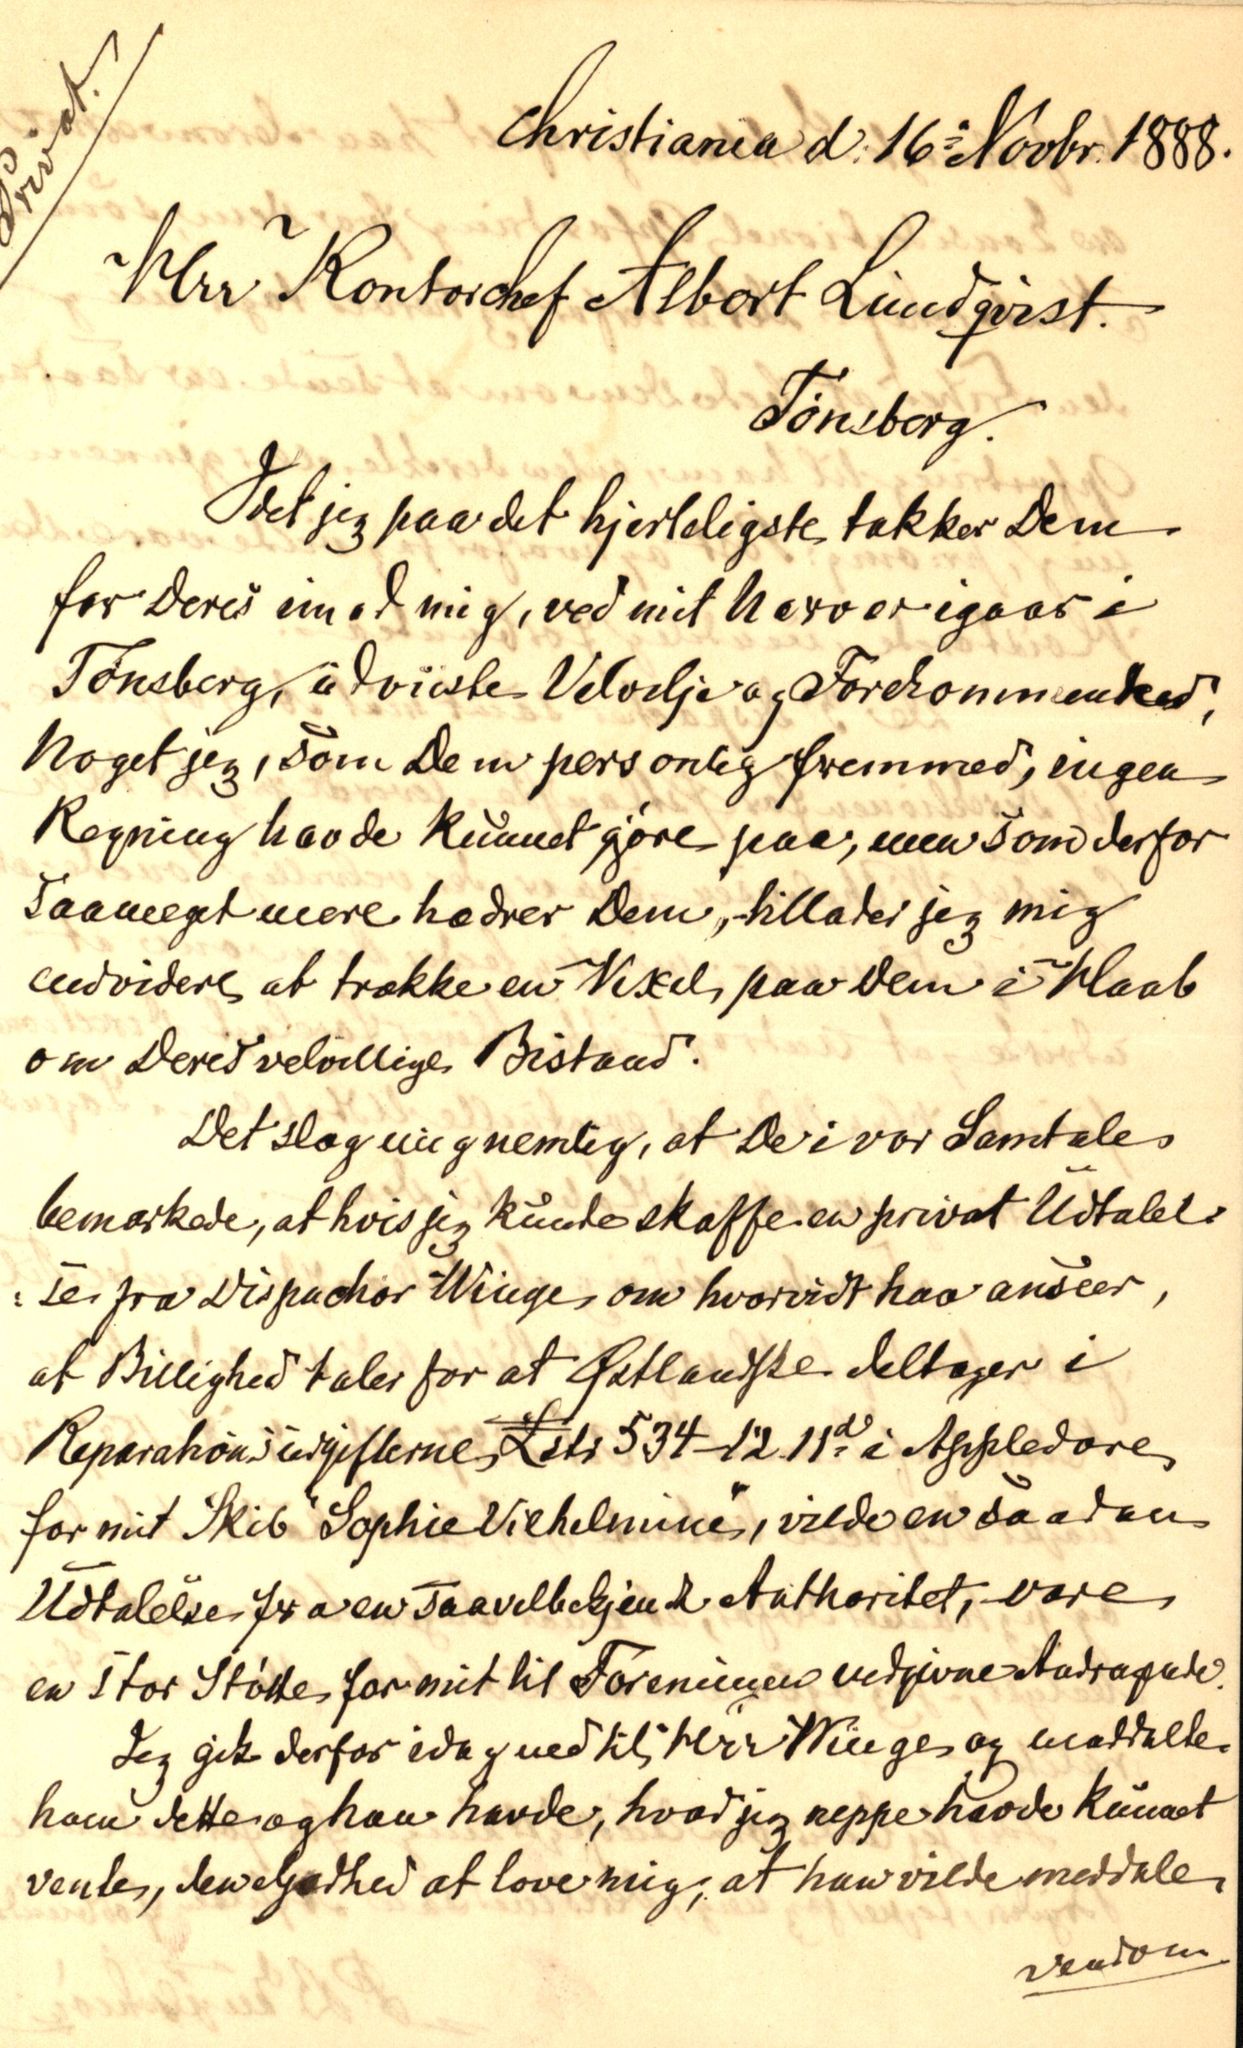 Privat.
Christiania d: 16 Novbr. 1888.
Herr Kontorchef Albert Lundqvist.
Tönsberg.
Idet jeg paa det hjerteligste takker Dem
for Deres imod mig, ved mit Nærvær igaar i
Tönsberg, udviiste Velvilje og Forekommenhed,
Noget jeg, som Dem personlig fremmed, ingen
Regning havde kunnet gjöre paa, men som derfor
saameget mere hædrer Dem, tillader jeg mig
endvidere at trække en Vexel paa Dem i Haab
om Deres velvillige Bistand.
Det slog mig nemlig, at De i vor Samtale
bemærkede, at hvis jeg kunde skaffe en privat Udtalel-
:se fra Dispachør Winge om hvorvidt han anseer,
at Billighed taler for at Østlandske deltager i
Reparationsudgifterne Lstr 534-12.11d i Appledore
for mit Skib "Sophie Vilhelmine", vilde en saadan
Udtalelse fra en saavelbekjendt Authoritet, være
en stor Stötte for mit til Foreningen indgivne Andragende.
Jeg gik derfor idag ned til Herr Winge og meddelte
ham dette og han havde, hvad jeg neppe havde kunnet
vente, den Godhed at love mig, at han vilde meddele
vendom